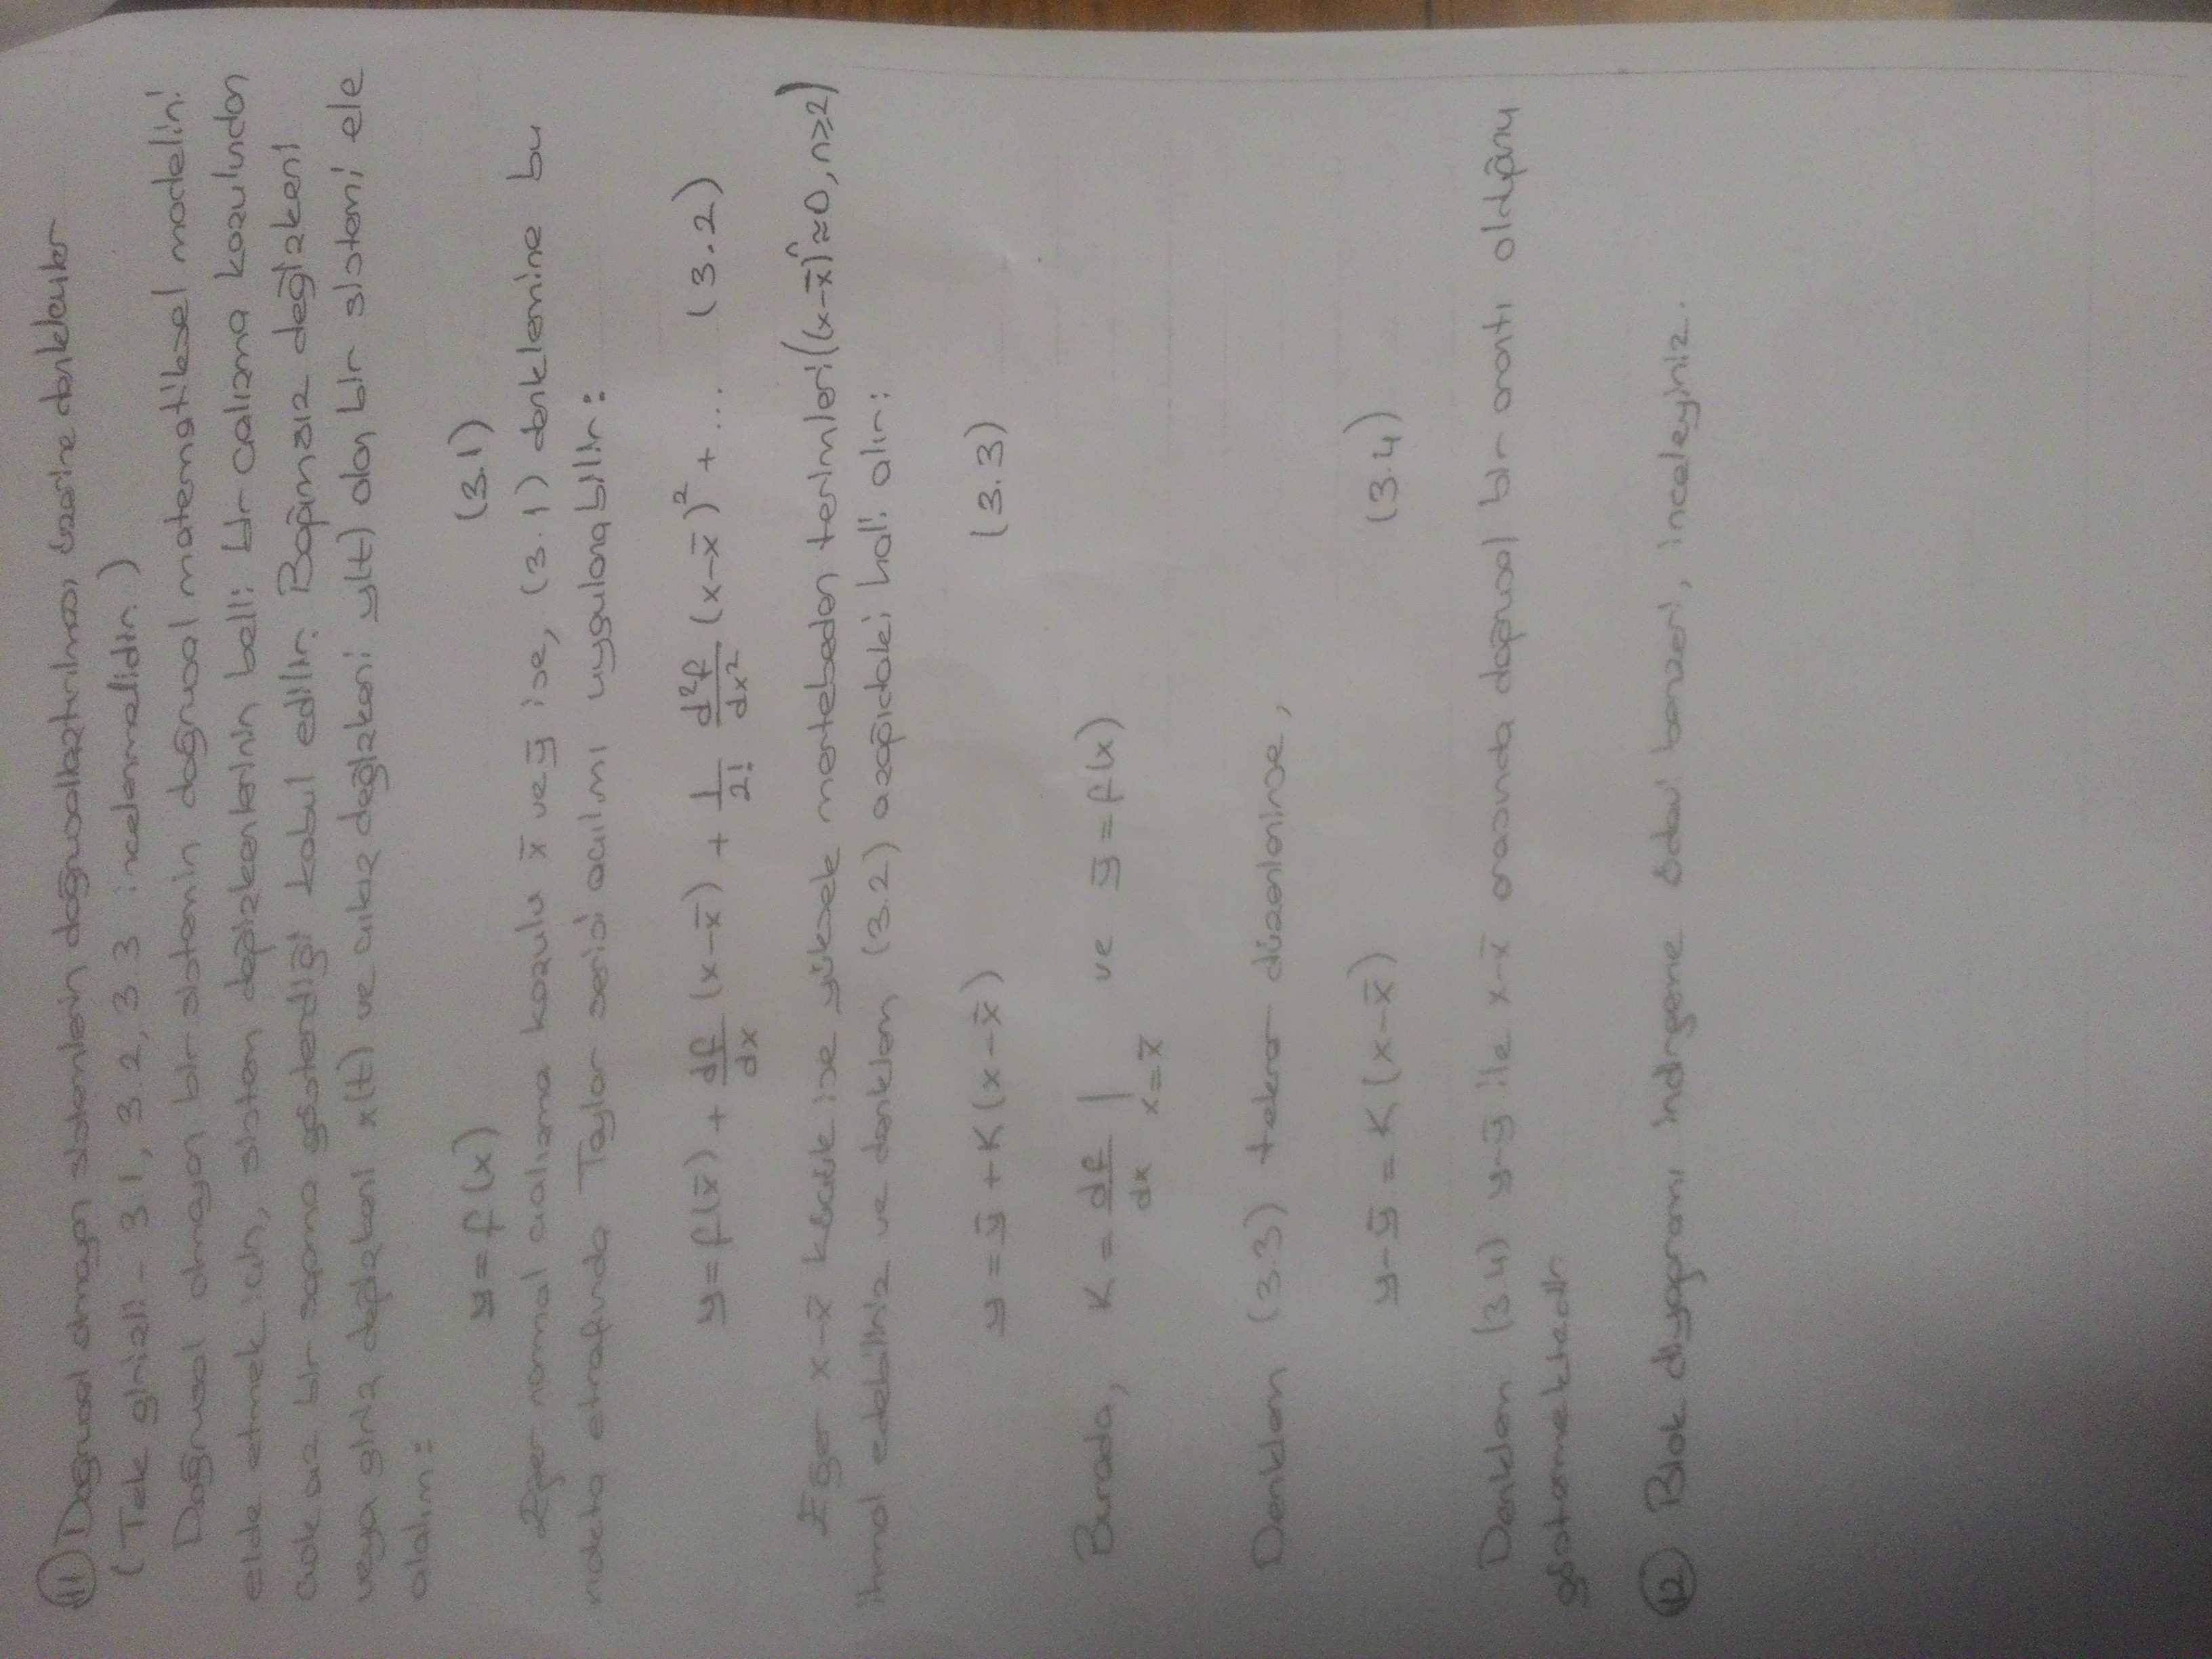 11 Doğrusal olmayan sistemlerin doğrusallaştırılması üzerine denklemler
(Tek girişli - 3.1, 3.2, 3.3 incelenmelidir.)
Doğrusal olmayan bir sistemin doğrusal matematiksel modelini
elde etmek için, sistem değişkenlerinin belli bir çalışma koşulundan
çok az bir sapma gösterdiği kabul edilir. Bağımsız değişkeni
veya giriş değişkeni x(t) ve çıkış değişkeni y(t) olan bir sistemi ele
alalım:
y = f(x) (3.1)
Eğer normal çalışma koşulu x̄ ve ȳ ise, (3.1) denklemine bu
nokta etrafında Taylor serisi açılımı uygulanabilir:
y = f(x̄) + df/dx (x-x̄) + 1/2! d²f/dx² (x-x̄)² + ... (3.2)
Eğer x-x̄ küçük ise yüksek mertebeden terimleri ((x-x̄)ⁿ≈0, n≥2)
ihmal edebiliriz ve denklem (3.2) aşağıdaki hali alır:
y = ȳ + K(x-x̄) (3.3)
Burada, K = df/dx |x=x̄ ve ȳ = f(x)
Denklem (3.3) tekrar düzenlenirse,
y-ȳ = K(x-x̄) (3.4)
Denklem (3.4) y-ȳ ile x-x̄ arasında doğrusal bir orantı olduğunu
göstermektedir.
12 Blok diyagramı indirgeme ödevi benzeri, inceleyiniz.